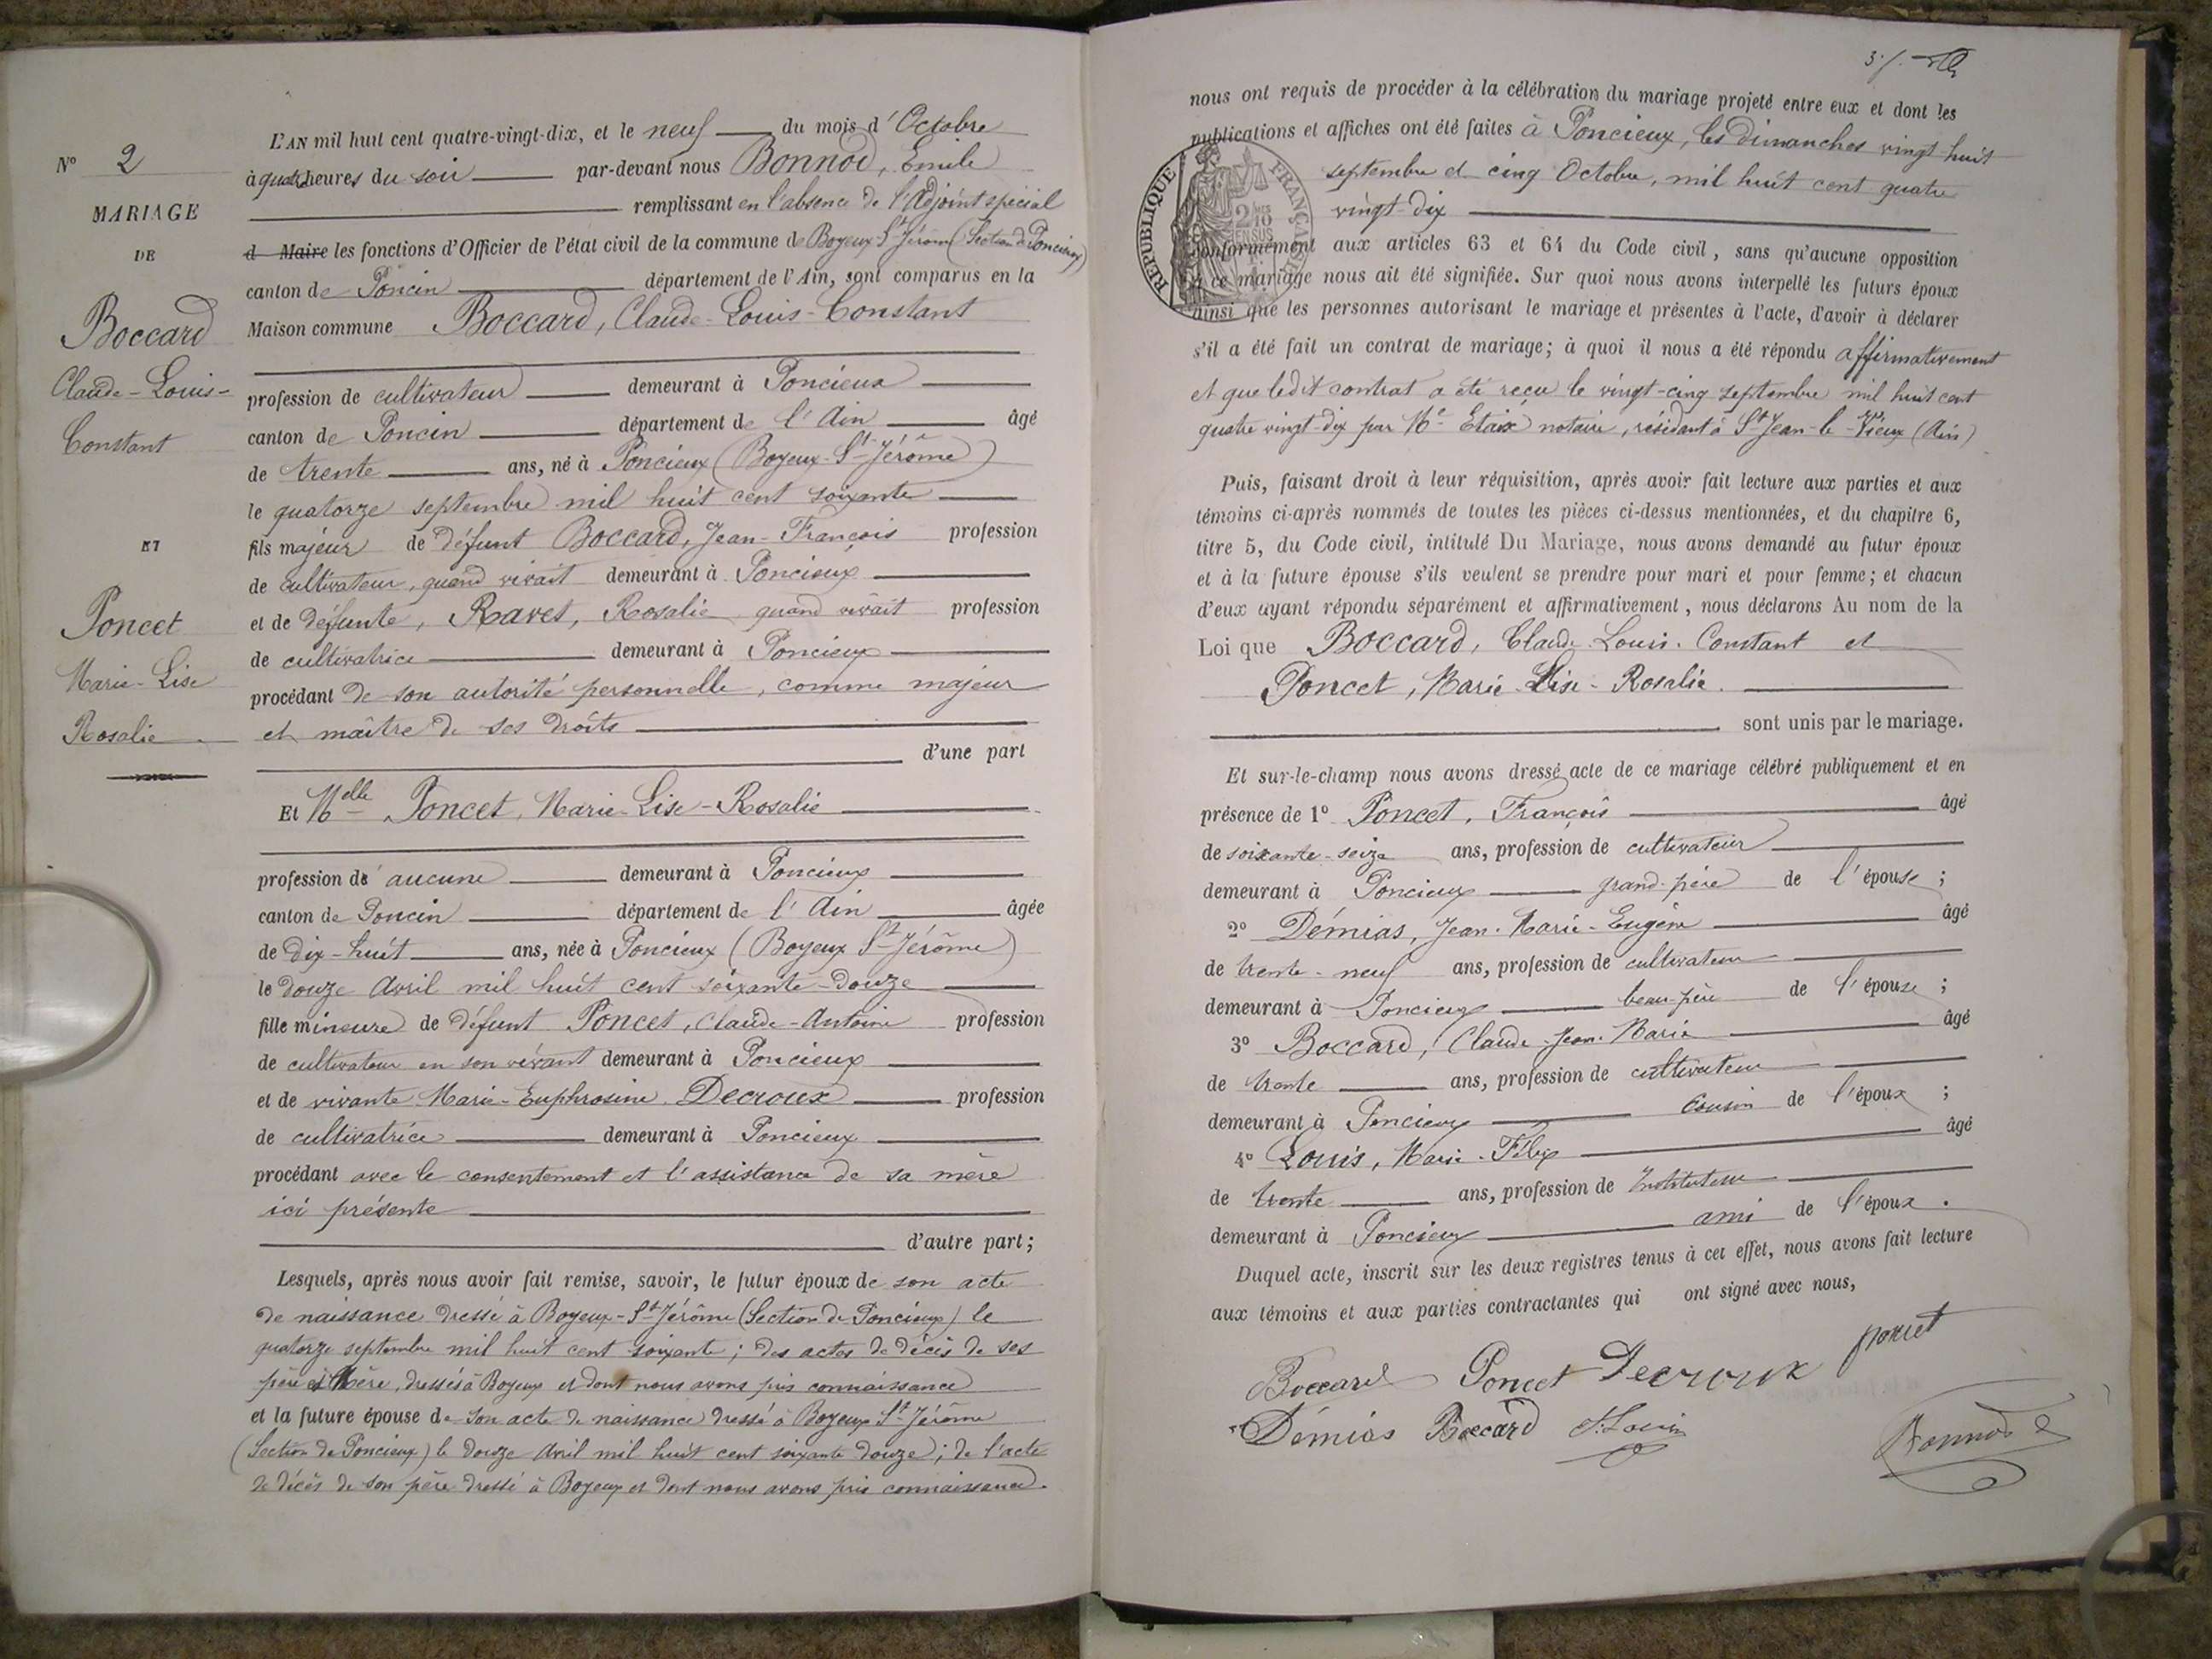 N° 2
MARIAGE
DE
Boccard
Claude-Louis-
Constant
ET
Poncet
Marie-Lise
Rosalie
L'AN mil huit cent quatre-vingt-dix, et le neuf du mois d'Octobre
à quatre heures du soir par-devant nous Bonnod, Emile
remplissant en l'absence de l'Adjoint spécial
d Maire les fonctions d'Officier de l'état civil de la commune de Boyeux-St-Jérôme (Section de Poncieux)
canton de Poncin département de l'Ain, sont comparus en la
Maison commune Boccard, Claude-Louis-Constant
profession de cultivateur demeurant à Poncieux
canton de Poncin département de l'Ain âgé
de trente ans, né à Poncieux (Boyeux-St-Jérôme)
le quatorze septembre mil huit cent soixante
fils majeur de défunt Boccard, Jean-François profession
de cultivateur, quand vivait demeurant à Poncieux
et de défunte, Ravet, Rosalie quand vivait profession
de cultivatrice demeurant à Poncieux
procédant de son autorité personnelle, comme majeur
et maître de ses droits
d'une part
Et Melle Poncet, Marie-Lise-Rosalie
profession de aucune demeurant à Poncieux
canton de Poncin département de l'Ain âgée
de dix-huit ans, née à Poncieux (Boyeux St-Jérôme)
le douze Avril mil huit cent soixante-douze
fille mineure de défunt Poncet, Claude-Antoine profession
de cultivateur en son vivant demeurant à Poncieux
et de vivante Marie-Euphrosine Decroux profession
de cultivatrice demeurant à Poncieux
procédant avec le consentement et l'assistance de sa mère
ici présente
d'autre part;
Lesquels, après nous avoir fait remise, savoir, le futur époux de son acte
de naissance dressé à Boyeux-St-Jérôme (Section de Poncieux) le
quatorze septembre mil huit cent soixante; des actes de décès de ses
père et Mère, dressés à Boyeux et dont nous avons pris connaissance
et la future épouse de son acte de naissance dressé à Boyeux St-Jérôme
(Section de Poncieux) le douze Avril mil huit cent soixante douze; de l'acte
de décès de son père dressé à Boyeux et dont nous avons pris connaissance.
nous ont requis de procéder à la célébration du mariage projeté entre eux et dont les
publications et affiches ont été faites à Poncieux, les dimanches vingt-huit
septembre et cinq Octobre, mil huit cent quatre
vingt-dix
RÉPUBLIQUE FRANÇAISE
2/10 EN SUS
conformément aux articles 63 et 64 du Code civil, sans qu'aucune opposition
à ce mariage nous ait été signifiée. Sur quoi nous avons interpellé les futurs époux
ainsi que les personnes autorisant le mariage et présentes à l'acte, d'avoir à déclarer
s'il a été fait un contrat de mariage; à quoi il nous a été répondu affirmativement
et que ledit contrat a été reçu le vingt-cinq septembre mil huit cent
quatre vingt-dix par Me Etaix notaire, résidant à St Jean-le-Vieux (Ain)
Puis, faisant droit à leur réquisition, après avoir fait lecture aux parties et aux
témoins ci-après nommés de toutes les pièces ci-dessus mentionnées, et du chapitre 6,
titre 5, du Code civil, intitulé Du Mariage, nous avons demandé au futur époux
et à la future épouse s'ils veulent se prendre pour mari et pour femme; et chacun
d'eux ayant répondu séparément et affirmativement, nous déclarons Au nom de la
Loi que Boccard, Claude-Louis-Constant et
Poncet, Marie-Lise-Rosalie.
sont unis par le mariage.
Et sur-le-champ nous avons dressé acte de ce mariage célébré publiquement et en
présence de 1° Poncet, François âgé
de soixante-seize ans, profession de cultivateur
demeurant à Poncieux grand-père de l'épouse;
2° Démias, Jean-Marie-Eugène âgé
de trente-neuf ans, profession de cultivateur
demeurant à Poncieux beau-père de l'épouse;
3° Boccard, Claude-Jean-Marie âgé
de trente ans, profession de cultivateur
demeurant à Poncieux Cousin de l'époux;
4° Louis, Marie-Félix âgé
de trente ans, profession de Instituteur
demeurant à Poncieux ami de l'époux.
Duquel acte, inscrit sur les deux registres tenus à cet effet, nous avons fait lecture
aux témoins et aux parties contractantes qui ont signé avec nous,
Boccard Poncet Decroux poncet
Démias Boccard F. Louis Bonnod